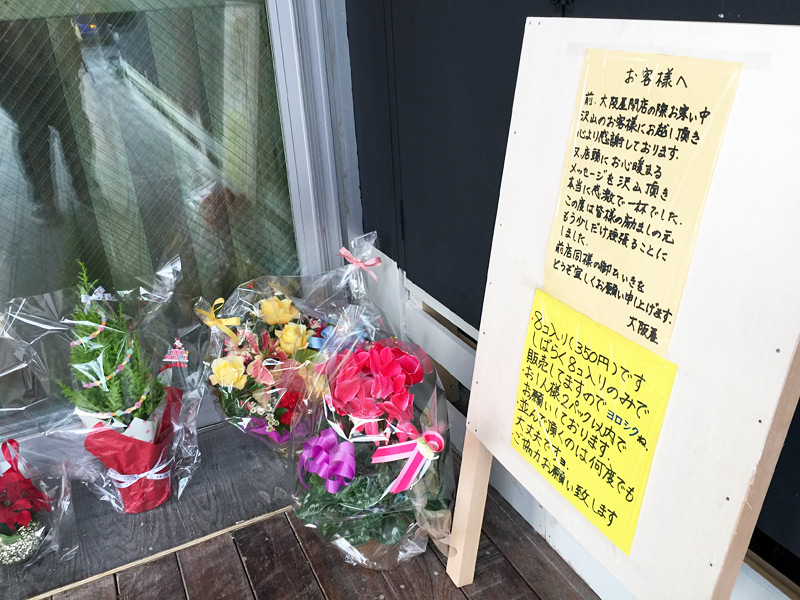 お客様へ
前、大阪屋閉店の際お寒い中
沢山のお客様にお越し頂き
心より感謝しております。
又、店頭にお心暖まる
メッセージを沢山頂き
本当に感激で一杯でした。
この度は皆様の励ましの元
もう少しだけ頑張ることに
しました。
前店同様の御ひいきを
どうぞ宜しくお願い申し上げます。
大阪屋
・8コ入り(350円)です
しばらく8コ入りのみで
販売してますので
お1人様2パック以内で
お願いしております。ヨロシクね
並んで頂くのは何度でも
大丈夫ですョ
ご協力お願い致します